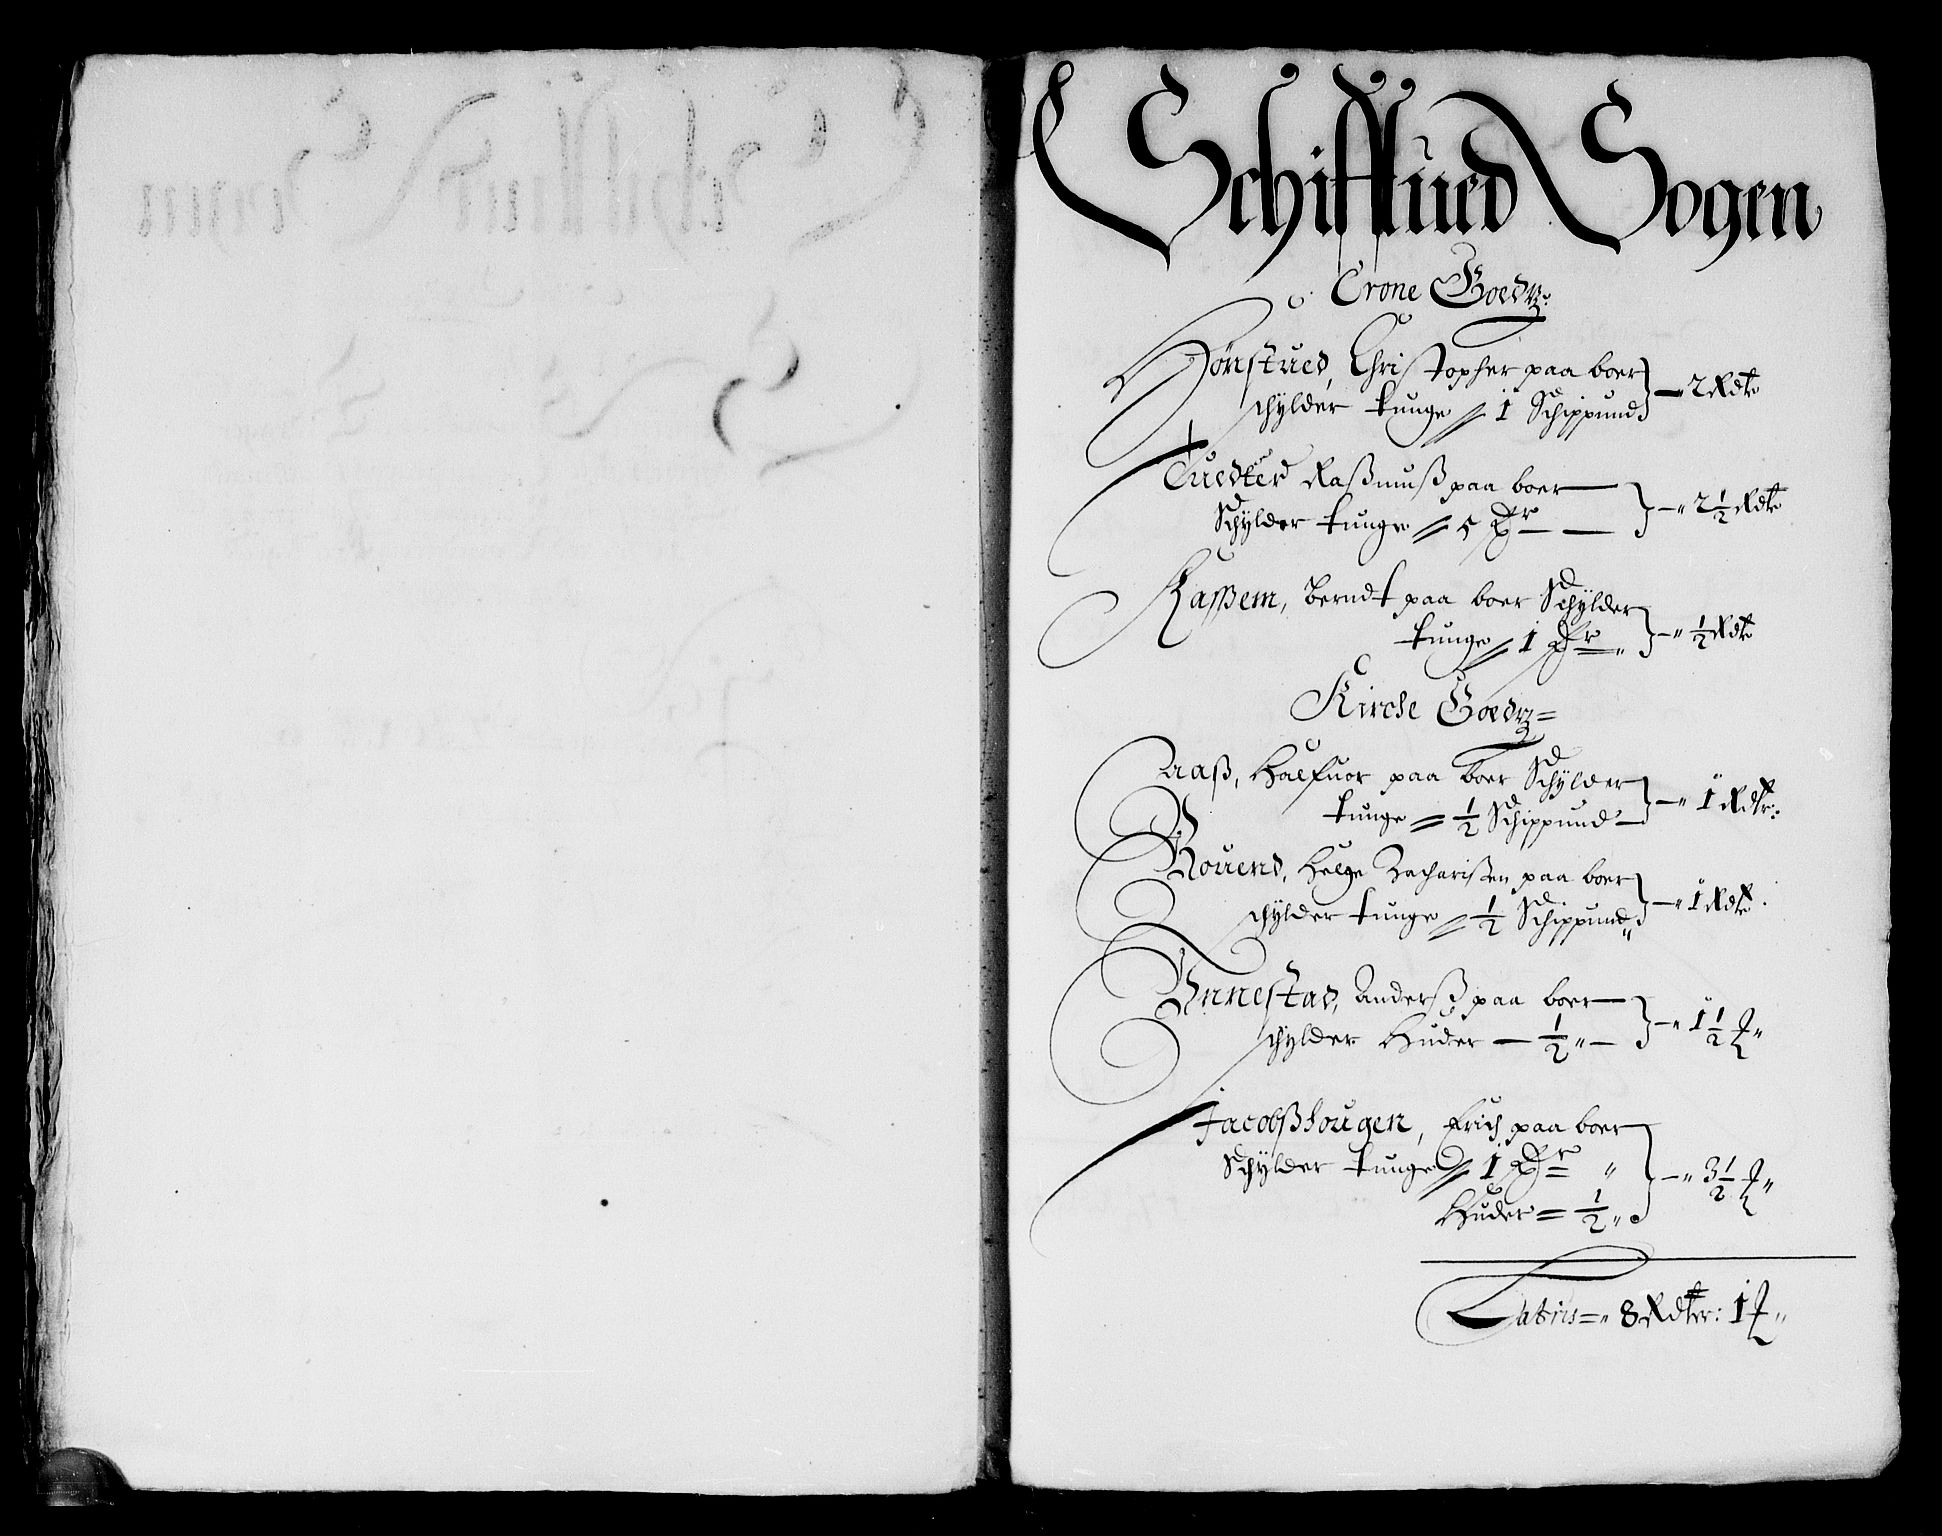 Schifftued Sogen
Crone Goedtz
Hönstued, Christopher paa boer
schylder tunge 1 Schippund 2 Rdtr
Tuedter Raßmuß paa boer
Schylder tunge 5 2½ Rdtr
Kassem, berndt paa boer Schylder
tunge 1 ½ Rdtr
Kirche Goedtz
Aaß, Halfuor paa boer Schylder
tunge ½ Schippund 1 Rdtr:
Rouend, Helge Zacharißen paa boer
schylder tunge ½ Schippund 1 Rdtr
Annestad, Anderß paa boer
schylder Huder ½ 1½
Jacobßhougen, Erich paa boer
Schylder tunge 1
Huder ½ 3½
Latris 8 Rdter: 1